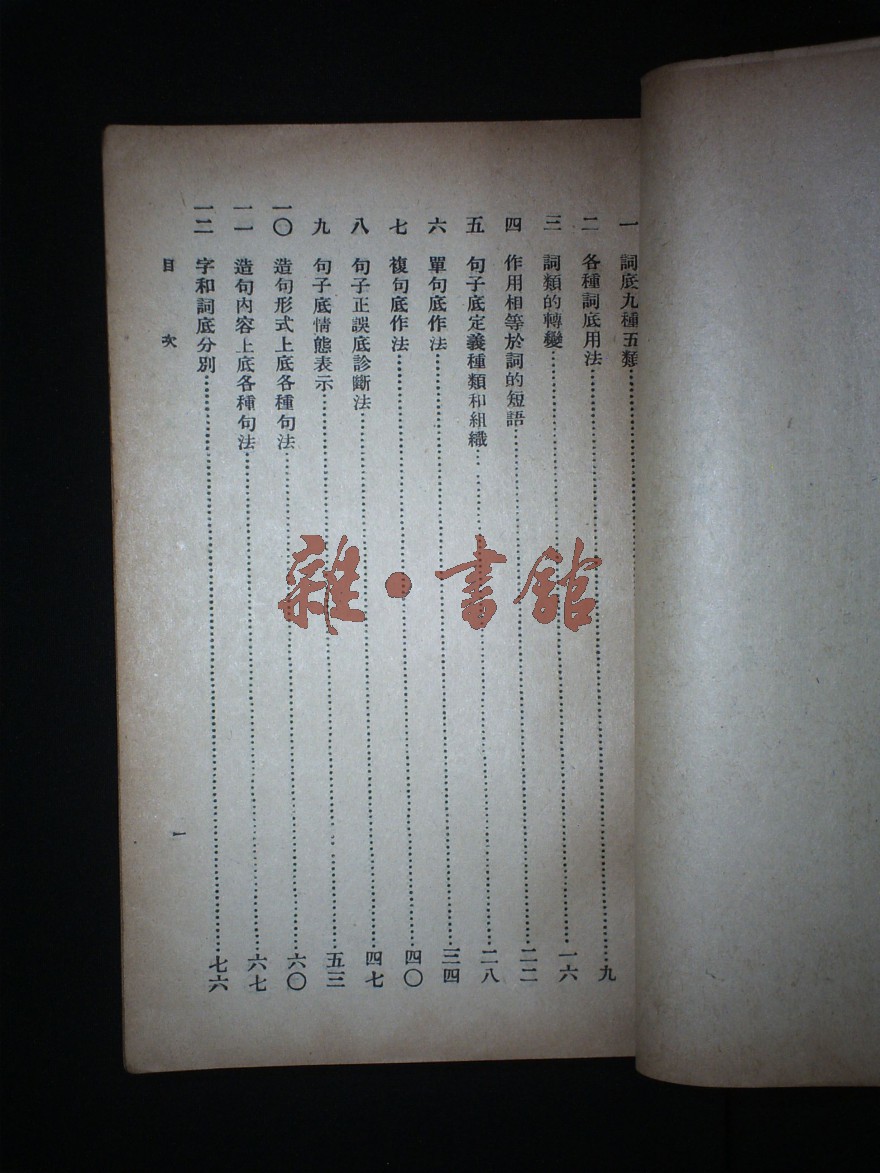 一 詞底九種五類
二 各種詞底用法 九
三 詞類的轉變 一六
四 作用相等於詞的短語 二二
五 句子底定義種類和組織 二八
六 單句底作法 三四
七 複句底作法 四〇
八 句子正誤底診斷法 四七
九 句子底情態表示 五三
一〇 造句形式上底各種句法 六〇
一一 造句內容上底各種句法 六七
一二 字和詞底分別 七六
目次 一
雜·書館